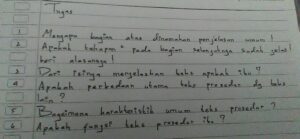 Tugas
1 Mengapa bagian atas dinamakan penjelasan umum !
2 Apakah tahapan " pada bagian selanjutnya sudah jelas !
beri alasannya !
3 Dari isinya menjelaskan teks apakah itu ?
4 Apakah perbedaan utama teks prosedur dg teks
lain ?
5 Bagaimana karakteristik umum teks prosedur ?
6 Apakah fungsi teks prosedur itu ?